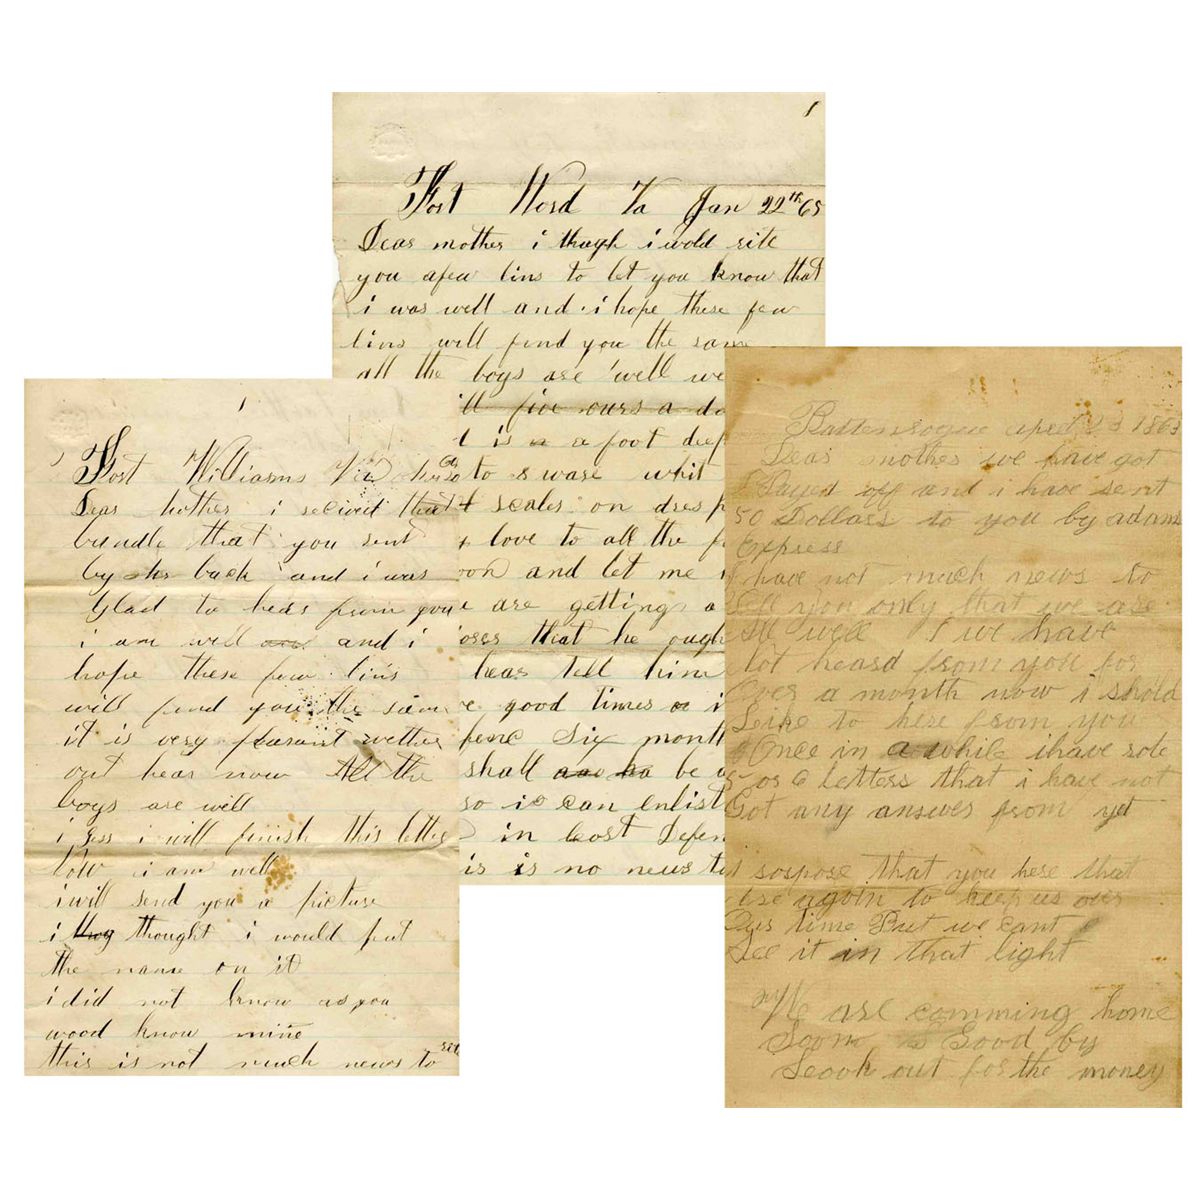 1
Fort Word Va Jan 22th 65
Dear mother i though i wold rite
you afew lins to let you know that
i was well and i hope these few
lins will find you the same
all the boys are well we
ill five ours a da
t is a foot deep
to s ware whit
t scales on dres p
love to all the f
oon and let me
e are getting a
oses that he ough
hear tell him
e good times or i
fenc Six month
shall be
so is can enlist
in Cost Defen
is is no news t
1
Fort Williams Va
Dear Mother i reciveit that
bundle that you sent
by back and i was
Glad to hear from you
i am well and i
hope these few lins
will find you the same
it is very plesant wether
out hear now All the
boys are well
i gess i will finish this letter
Now i am well
i will send you a picture
i thog thought i would put
the name on it
i did not know as you
wood know mine
this is not much news to rite
Battenrogue april 23 1863
Dear mother we have got
Payed off and i have sent
50 Dollars to you by adams
Express
I have not much news to
tell you only that we are
All well I we have
Not heard from you for
Over a month now i shold
Like to here from you
Once in a while i have rote
5 or 6 letters that i have not
Got any answer from yet
i sospose that you here that
are agoin to keep us over
Our time But we cant
See it in that light
We are comming home
Soom Good by
Loook out for the money